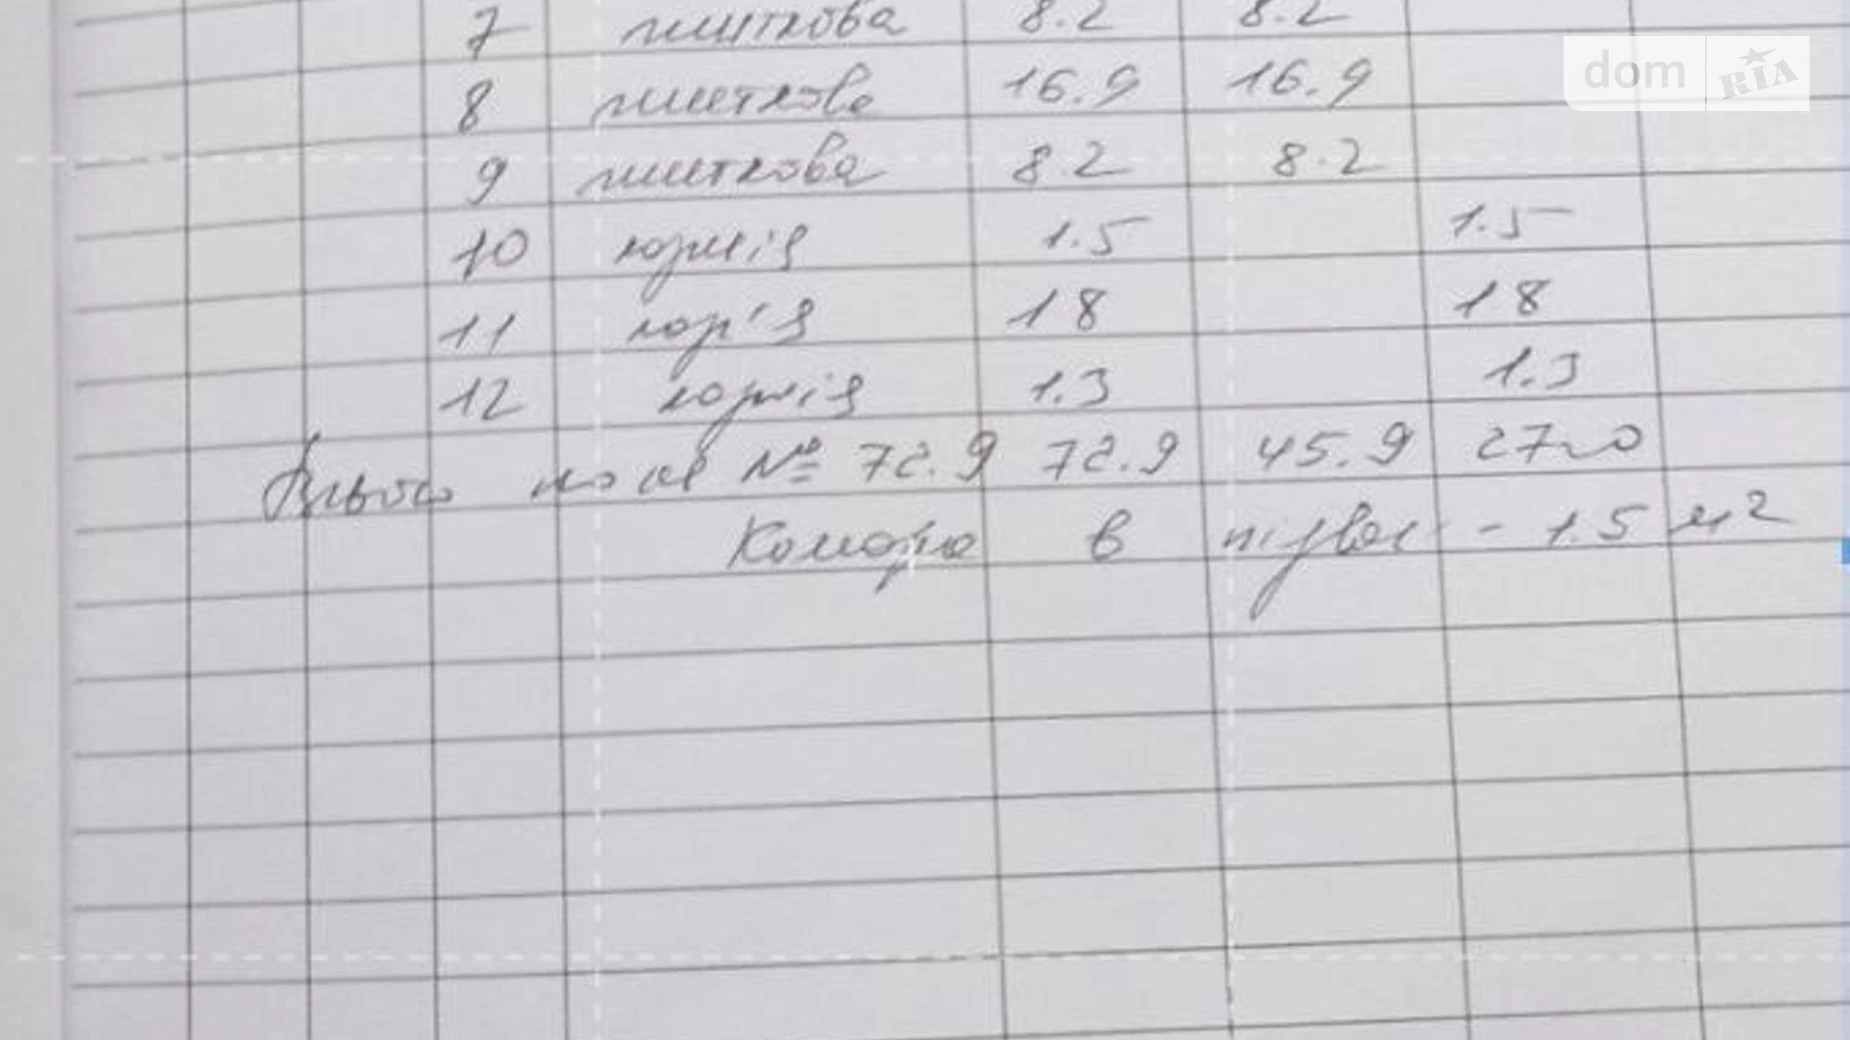 7 житлова 8.2 8.2
dom RIA
8 житлова 16.9 16.9
9 житлова 8.2 8.2
10 1.5 1.5
11 18 18
12 1.3 1.3
Всього по кв № 72.9 72.9 45.9 27.0
Комора в підвал - 1.5 м²